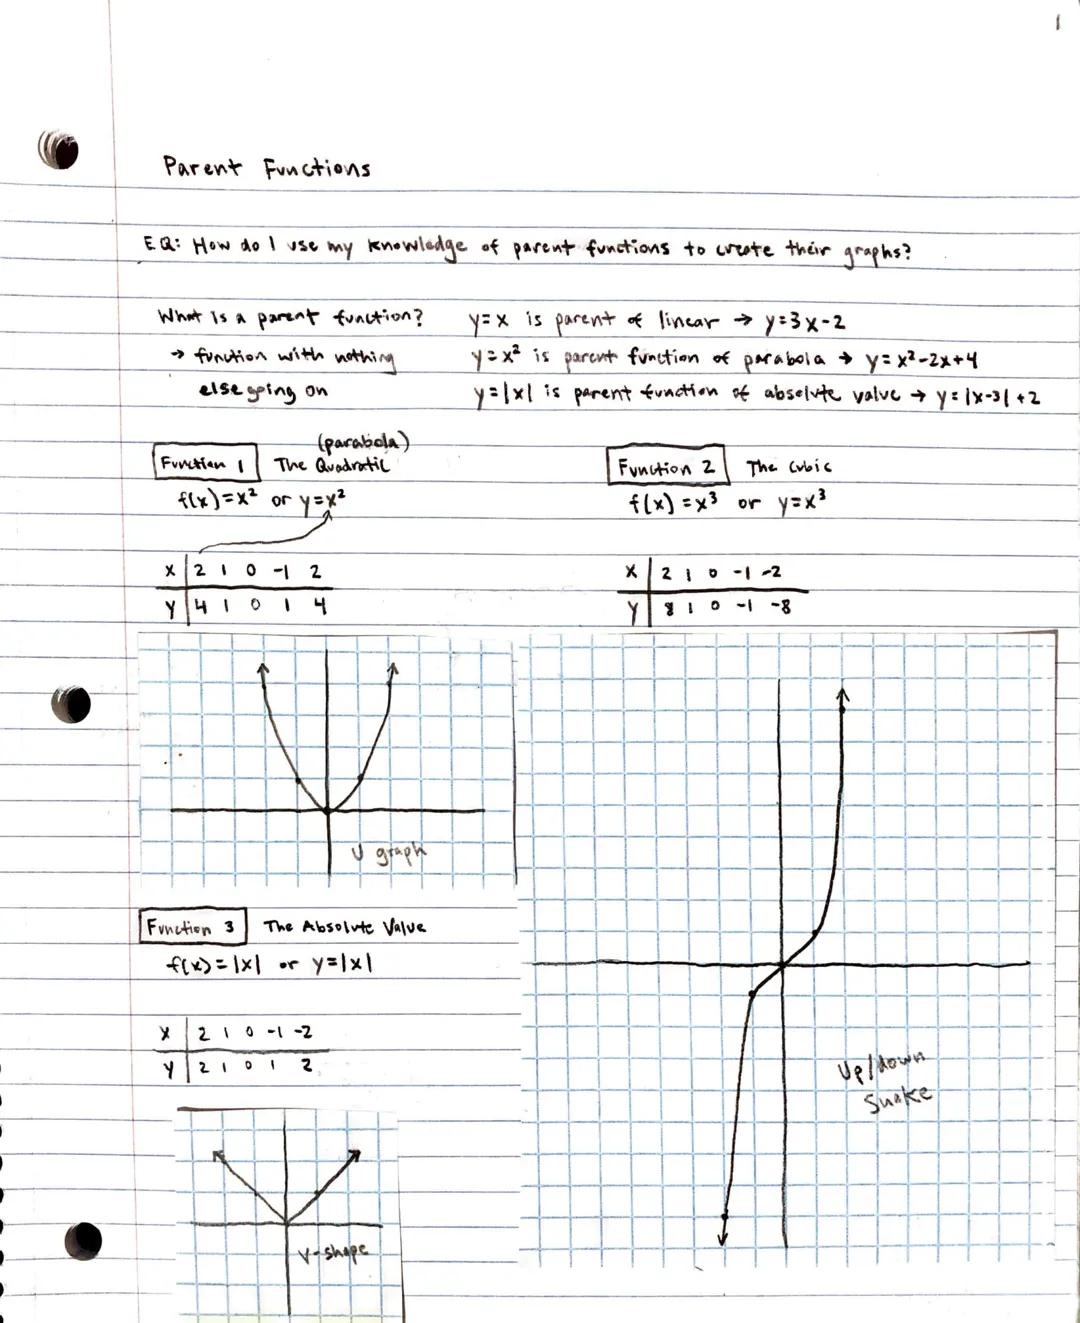 1
Parent Functions
EQ: How do I use my knowledge of parent functions to create their graphs?
What is a parent function?
→ function with nothing
else going on
y=x is parent of linear → y=3x-2
y=x² is parent function of parabola → y=x²-2x+4
y=|x| is parent function of absolute value → y=|x-3|+2
(parabola)
Function 1 The Quadratic
f(x)=x² or y=x²
X 2 1 0 -1 2
Y 4 1 0 1 4
U graph
Function 2 The Cubic
f(x)=x³ or y=x³
X 2 1 0 -1 -2
Y 8 1 0 -1 -8
Up/down
Snake
Function 3 The Absolute Value
f(x)=|x| or y=|x|
X 2 1 0 -1 -2
Y 2 1 0 1 2
V-shape